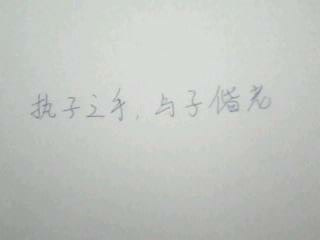 执子之手,与子偕老